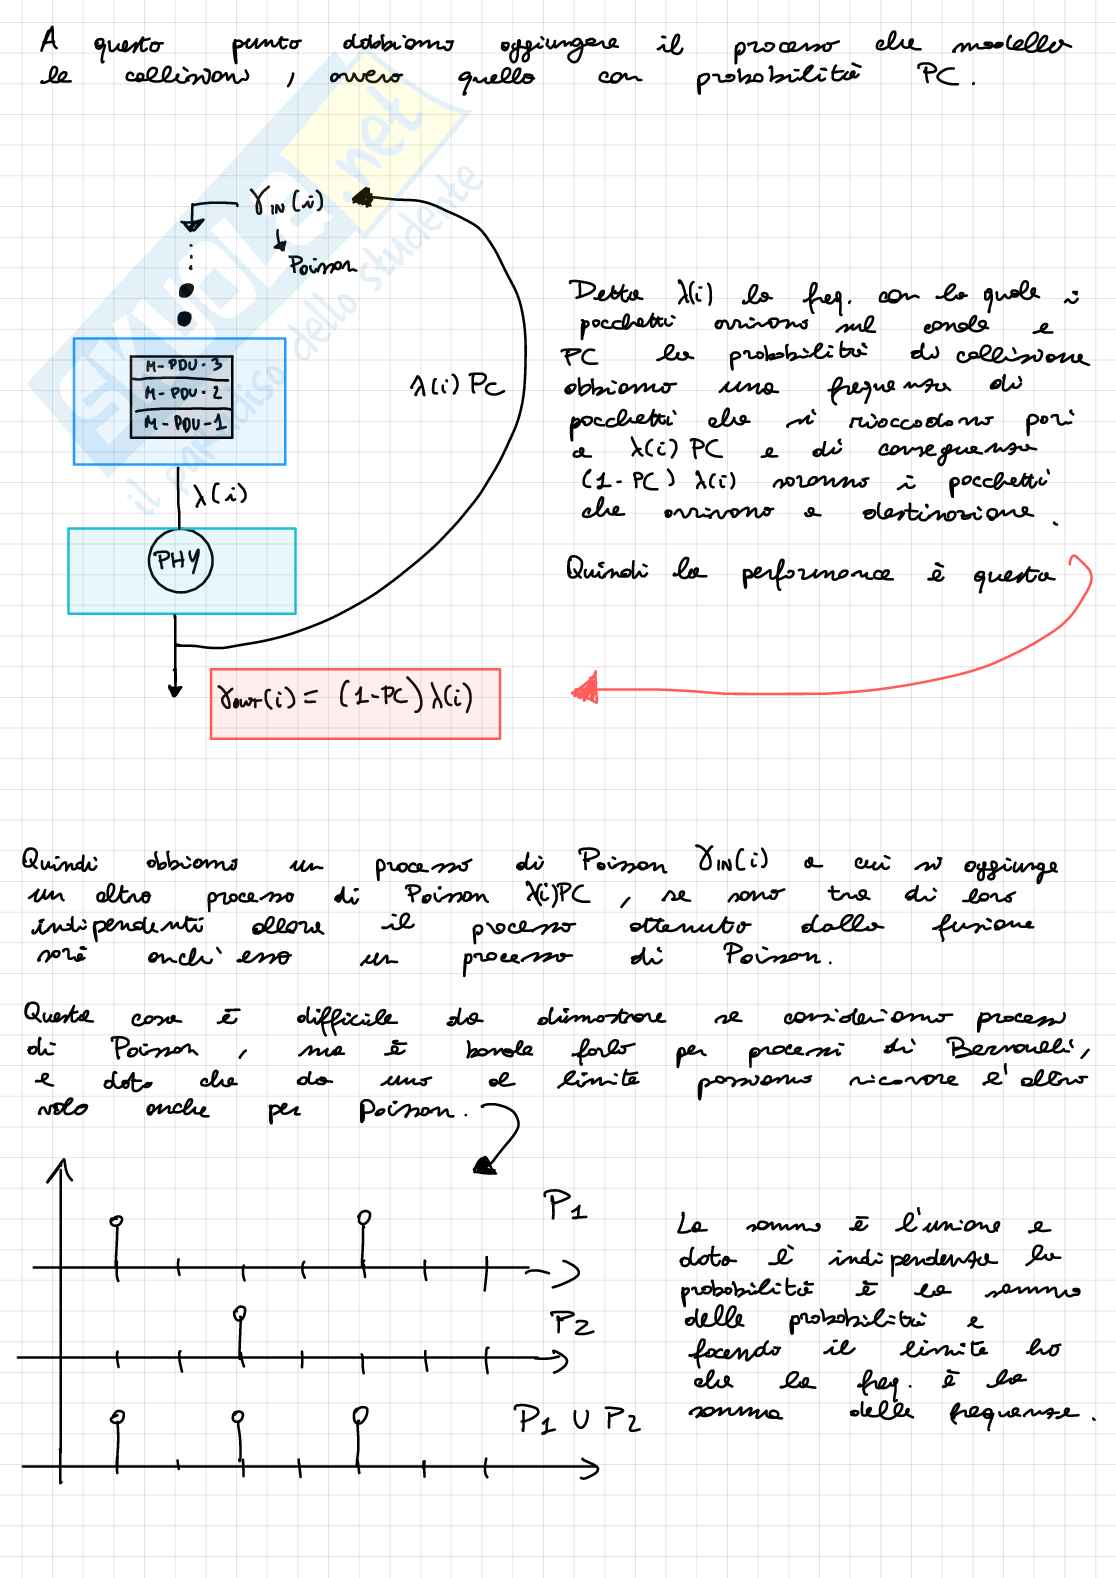 A questo punto dobbiamo aggiungere il processo che modella
le collisioni, ovvero quello con probabilità PC.
γIN(i)
Poisson
M-PDU-3
M-PDU-2
M-PDU-1
λ(i)
PHY
λ(i) PC
γOUT(i) = (1-PC) λ(i)
Detta λ(i) la freq. con la quale i
pacchetti arrivano sul canale e
PC la probabilità di collisione
abbiamo una frequenza di
pacchetti che si riaccodano pari
a λ(i) PC e di conseguenza
(1-PC) λ(i) saranno i pacchetti
che arrivano a destinazione.
Quindi la performance è questa
Quindi abbiamo un processo di Poisson γIN(i) a cui si aggiunge
un altro processo di Poisson λ(i)PC, se sono tra di loro
indipendenti allora il processo ottenuto dalla fusione
sarà anch'esso un processo di Poisson.
Questa cosa è difficile da dimostrare se consideriamo processi
di Poisson, ma è banale farlo per processi di Bernoulli,
e dato che da uno al limite possiamo ricavare l'altro
vale anche per Poisson.
P1
P2
P1 U P2
La somma è l'unione e
data l'indipendenza la
probabilità è la somma
delle probabilità e
facendo il limite ho
che la freq. è la
somma delle frequenze.
SKUOLA.net
il paradiso dello studente